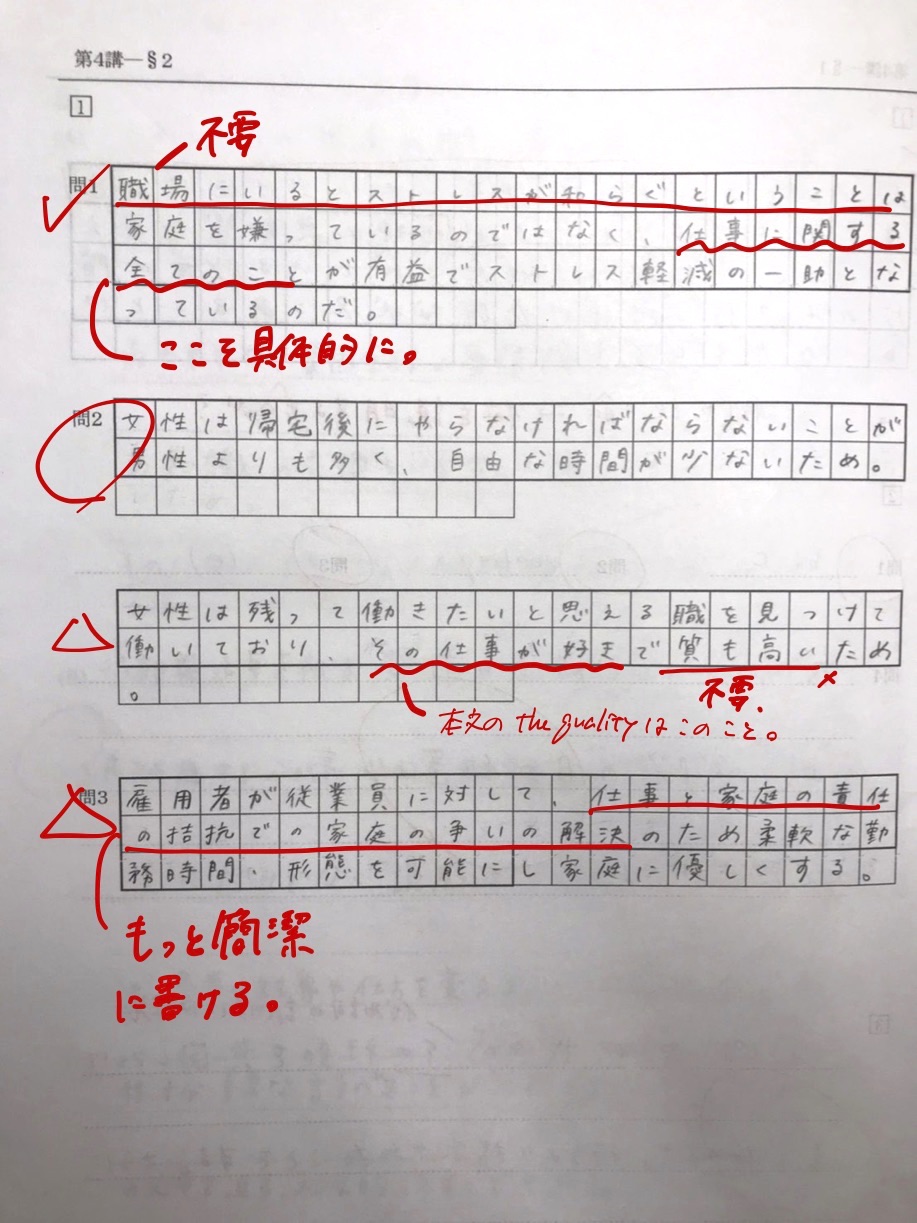 第4講―§2
1
不要
問1
職場にいるとストレスが和らぐということは
家庭を嫌っているのではなく、仕事に関する
全てのことが有益でストレス軽減の一助とな
っているのだ。
ここを具体的に。
問2
女性は帰宅後にやらなければならないことが
男性よりも多く、自由な時間が少ないため。
女性は残って働きたいと思える職を見つけて
働いており、その仕事が好きで質も高いため
。
不要.
本文の the quality はこのこと。
問3
雇用者が従業員に対して、仕事と家庭の責任
の拮抗での家庭の争いの解決のため柔軟な勤
務時間・形態を可能にし家庭に優しくする。
もっと簡潔
に書ける。